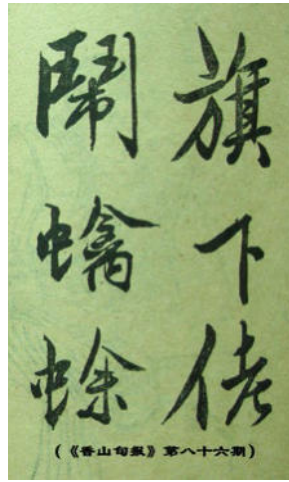 旗下佬
鬧蠄蜍
(《香山旬报》第八十六期)